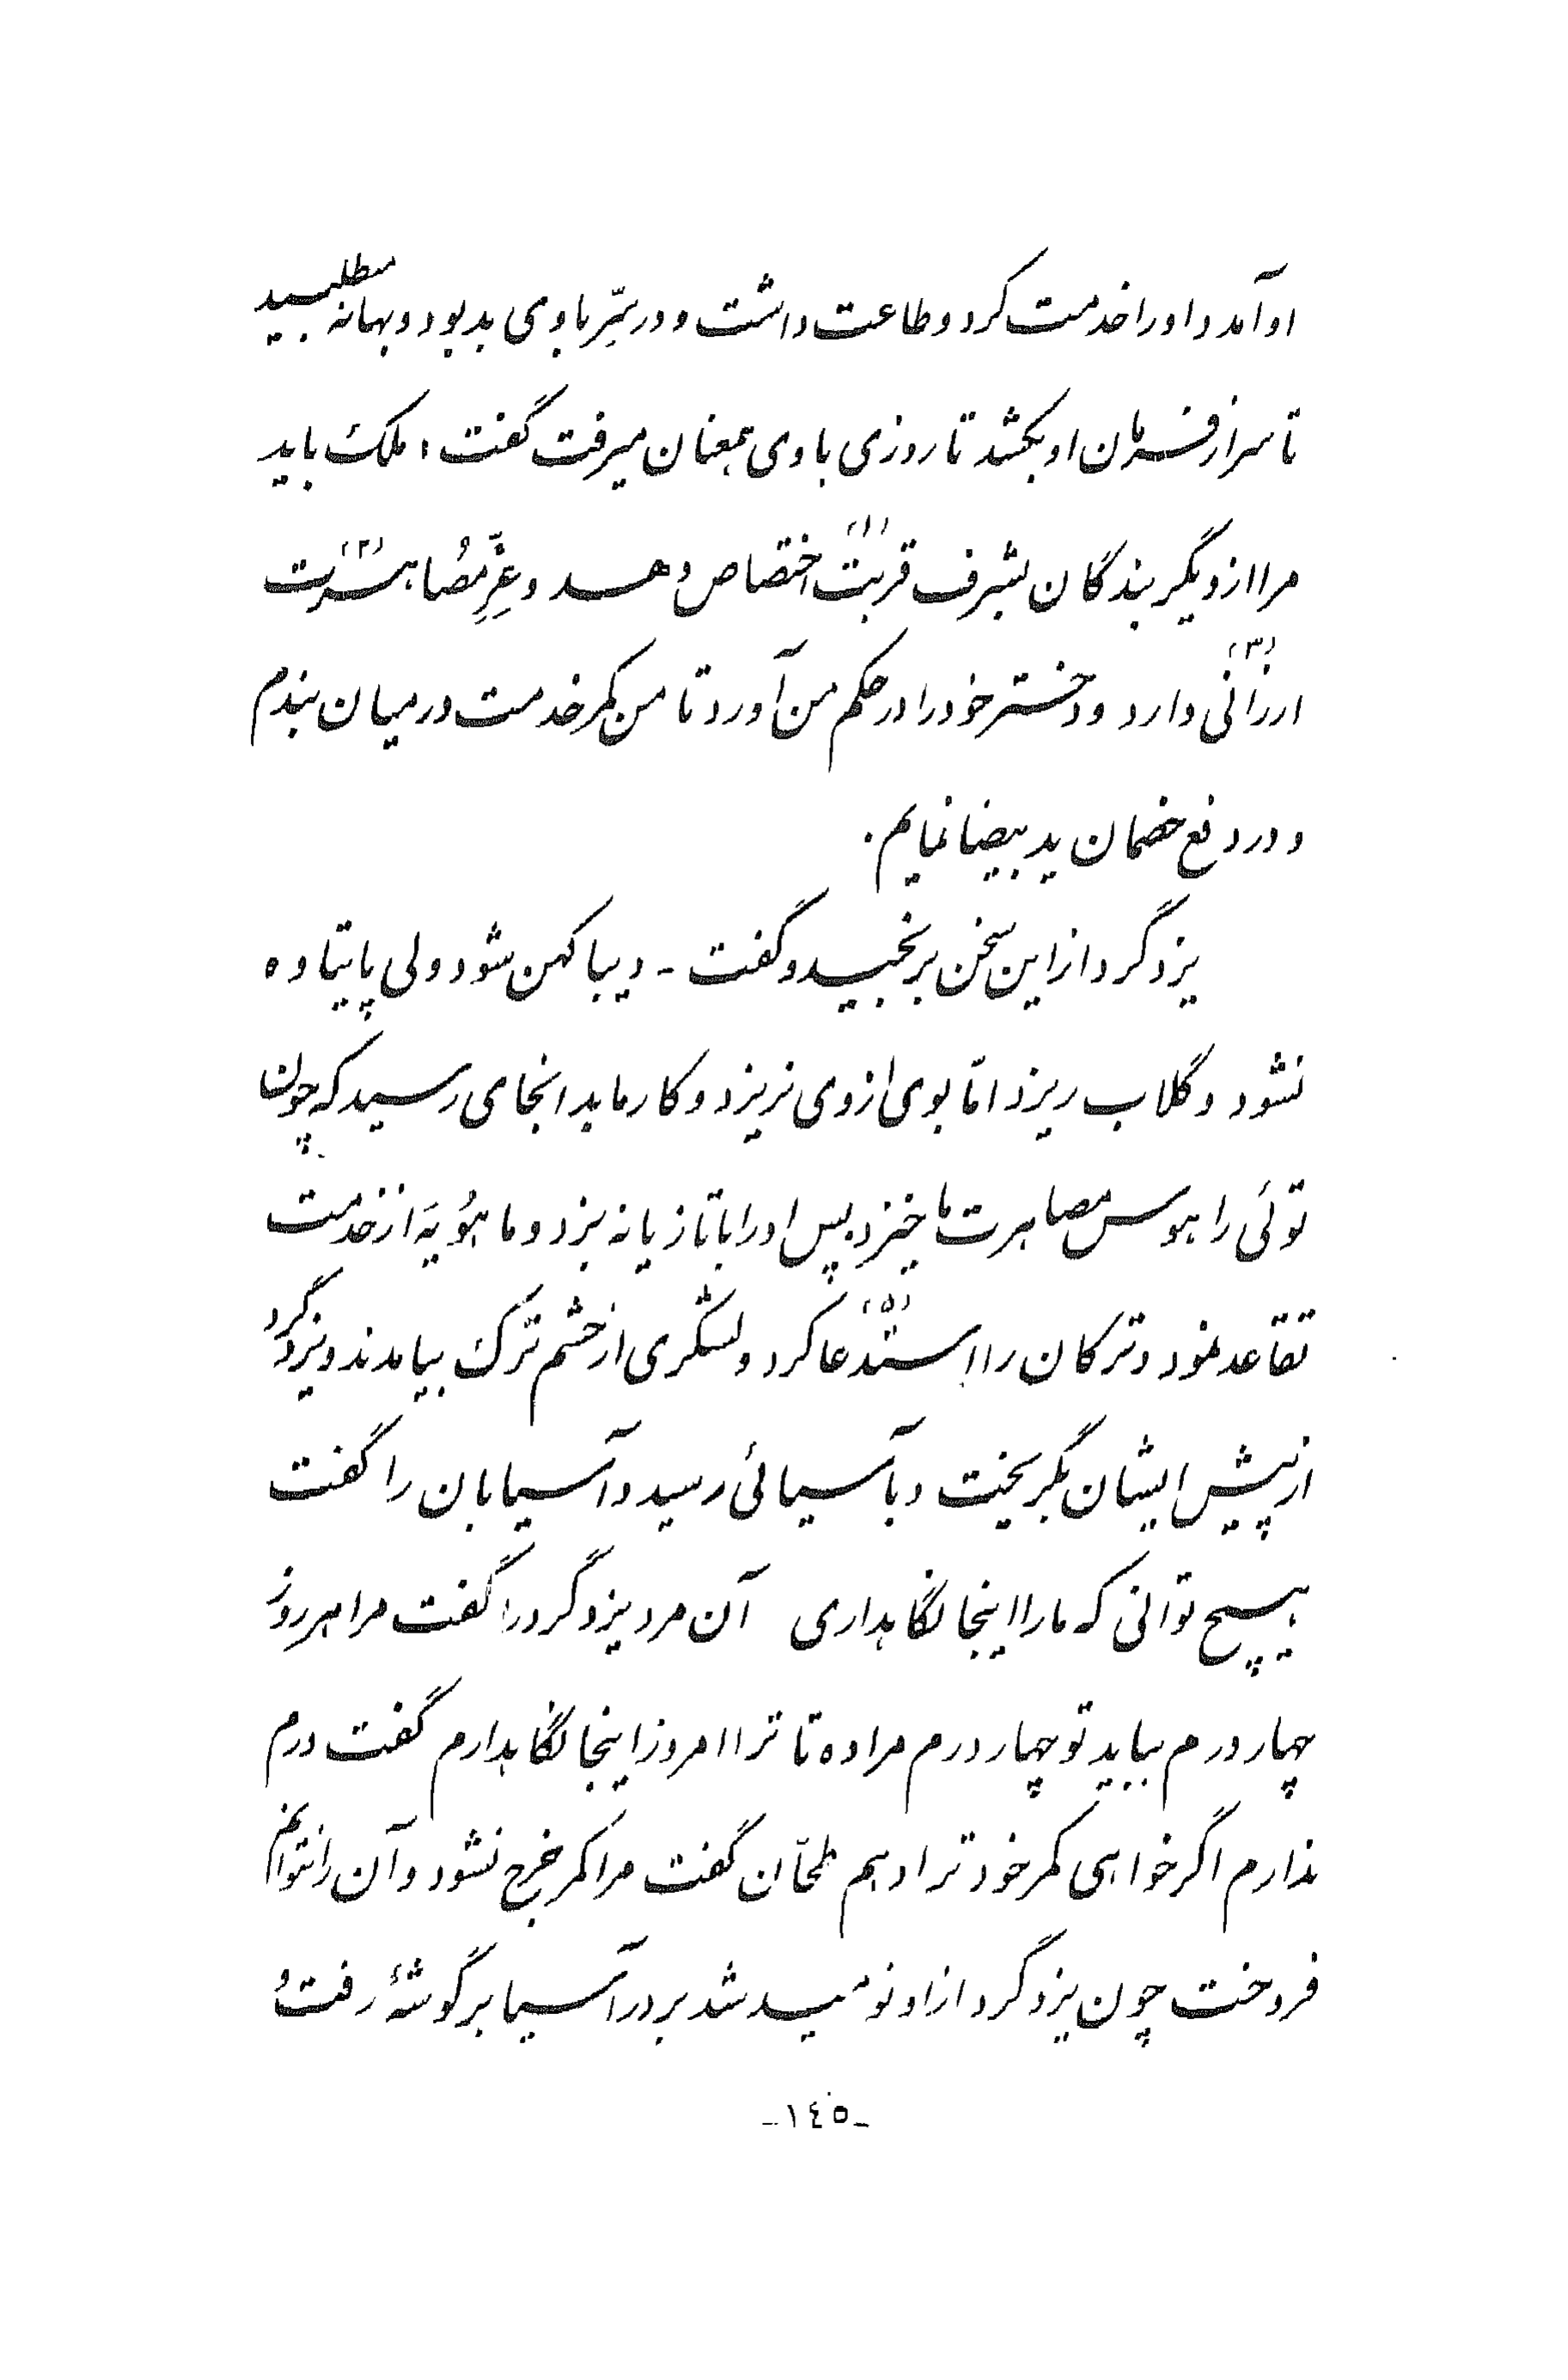 او آمد و او را خدمت کرد و طاعت داشت و در سِرّ با وی بد بود و بهانه میطلبید
تا سر از فرمان او بکشد تا روزی با وی همعنان میرفت گفت: ملک باید
مرا از دیگر بندگان بشرف قربت(۱) اختصاص دهد و عِزِّ مُصاهرت(۲)
ارزانی(۳) دارد و دختر خود را در حکم من آورد تا من کمر خدمت در میان بندم
و در دفع خصمان ید بیضا نمایم.
یزدگرد از این سخن برنجید و گفت - دیبا کهن شود ولی پایتاوه
نشود و گلاب ریزد امّا بوی از وی نریزد و کار ما بدانجای رسید که چون
توئی را هوس مصاهرت ما خیزد. پس او را با تازیانه بزد و ماهُویَه از خدمت
تقاعد نمود و ترکان را استدعا(۵) کرد و لشگری از خشم ترک بیامدند و یزدگرد
از پیش ایشان بگریخت و بآسیائی رسید و آسیابان را گفت
هیچ توانی که ما را اینجا نگاهداری آن مرد یزدگرد را گفت مرا هر روز
چهار درم بباید تو چهار درم مرا ده تا ترا امروز اینجا نگاهدارم گفت درم
ندارم اگر خواهی کمر خود ترا دهم طحّان گفت مرا کمر خرج نشود و آن را نتوانم
فروخت چون یزدگرد از او نومید شد بر در آسیا بر گوشهٔ رفت و
-١٤٥-